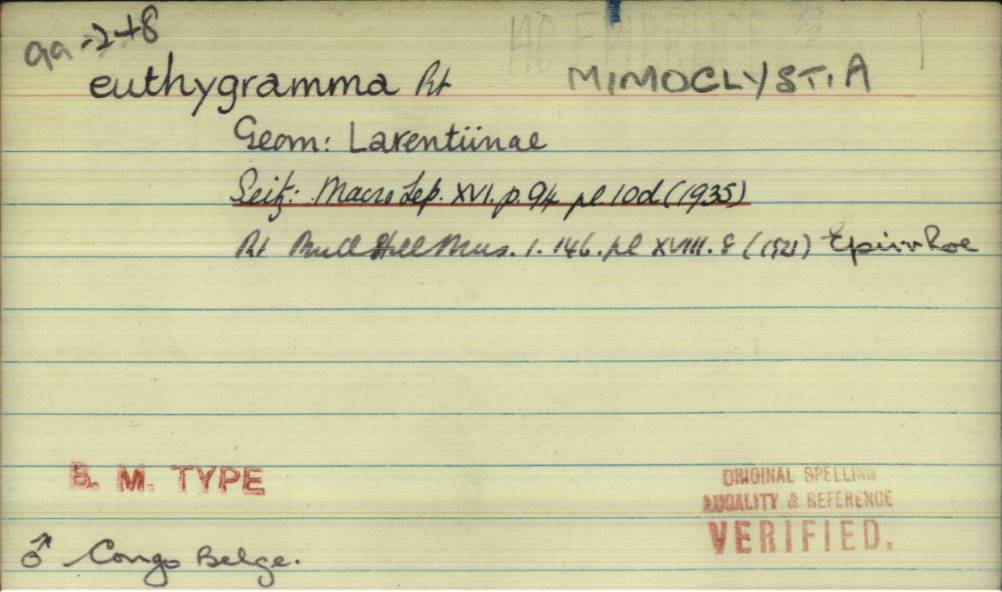 euthygramma Rt MIMOCLYSTIA
Geom: Larentiinae
Seitz: Macro Lep. XVI. p. 94 pl. 10d (1935)
Rt Bull Hill Mus. 1. 146. pl XVIII. 8 (1921) Epirrhoe
B. M. TYPE
ORIGINAL SPELLING
LOCALITY & REFERENCE
VERIFIED.
♂ Congo Belge.